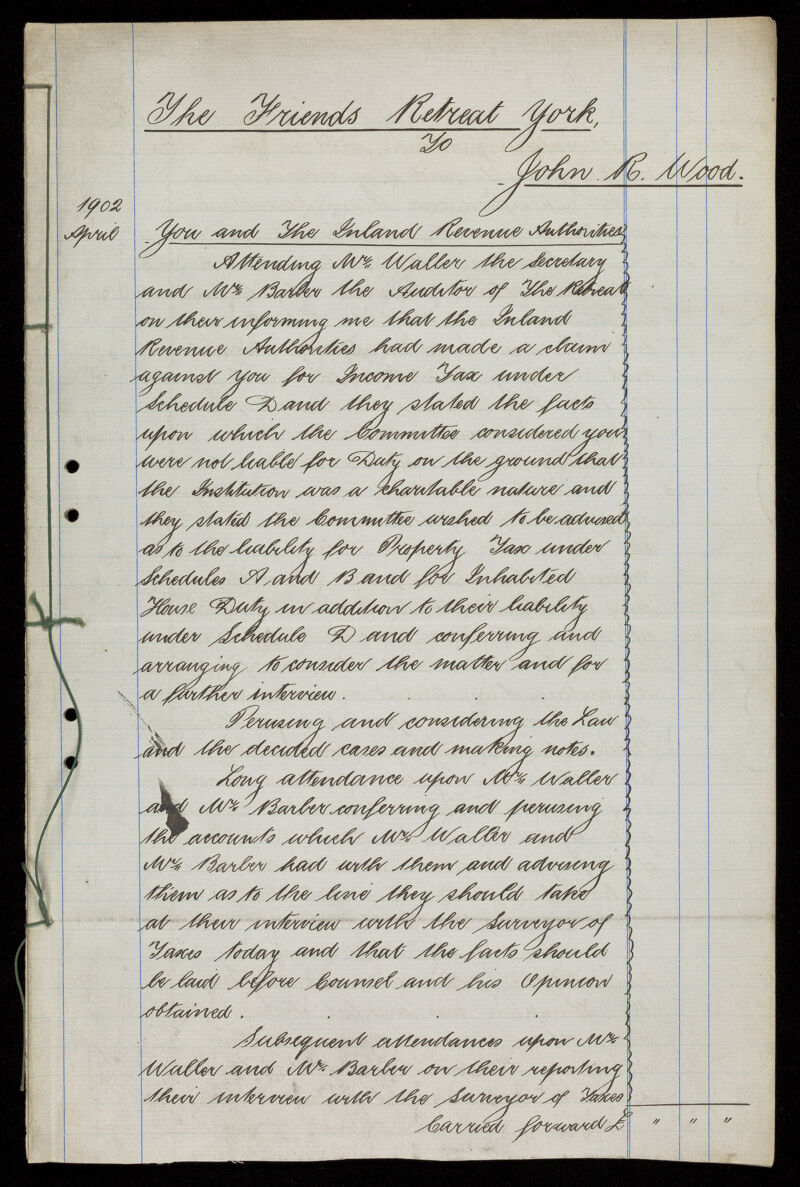 The Friends Retreat York,
To
John R. Wood.
1902
April
You and The Inland Revenue Authorities
Attending Mr. Waller the Secretary
and Mr. Barber the Auditor of The Retreat
on their informing me that the Inland
Revenue Authorities had made a claim
against you for Income Tax under
Schedule D and they stated the facts
upon which the Committee considered you
were not liable for Duty on the ground that
the Institution was a charitable nature and
they stated the Committee wished to be advised
as to the liability for Property Tax under
Schedules A and B and for Inhabited
House Duty in addition to their liability
under Schedule D and conferring and
arranging to consider the matter and for
a further interview.
Perusing and considering the Law
and the decided cases and making notes.
Long attendance upon Mr. Waller
and Mr. Barber conferring and perusing
the accounts which Mr. Waller and
Mr. Barber had with them and advising
them as to the line they should take
at their interview with the Surveyor of
Taxes today and that the facts should
be laid before Counsel and his Opinion
obtained.
Subsequent attendances upon Mr.
Waller and Mr. Barber on their reporting
their interview with the Surveyor of Taxes
Carried forward £ " " "